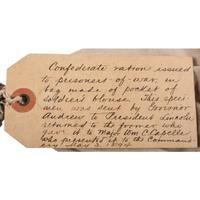 Confederate ration issued
to prisoners-of-war, in
bag made of pocket of
soldier's blouse. This speci-
men was sent by Governor
Andrew to President Lincoln
returned to the former who
gave it to Major Wm C. Capelle
who presents it to the Command-
ery May 2, 1894.